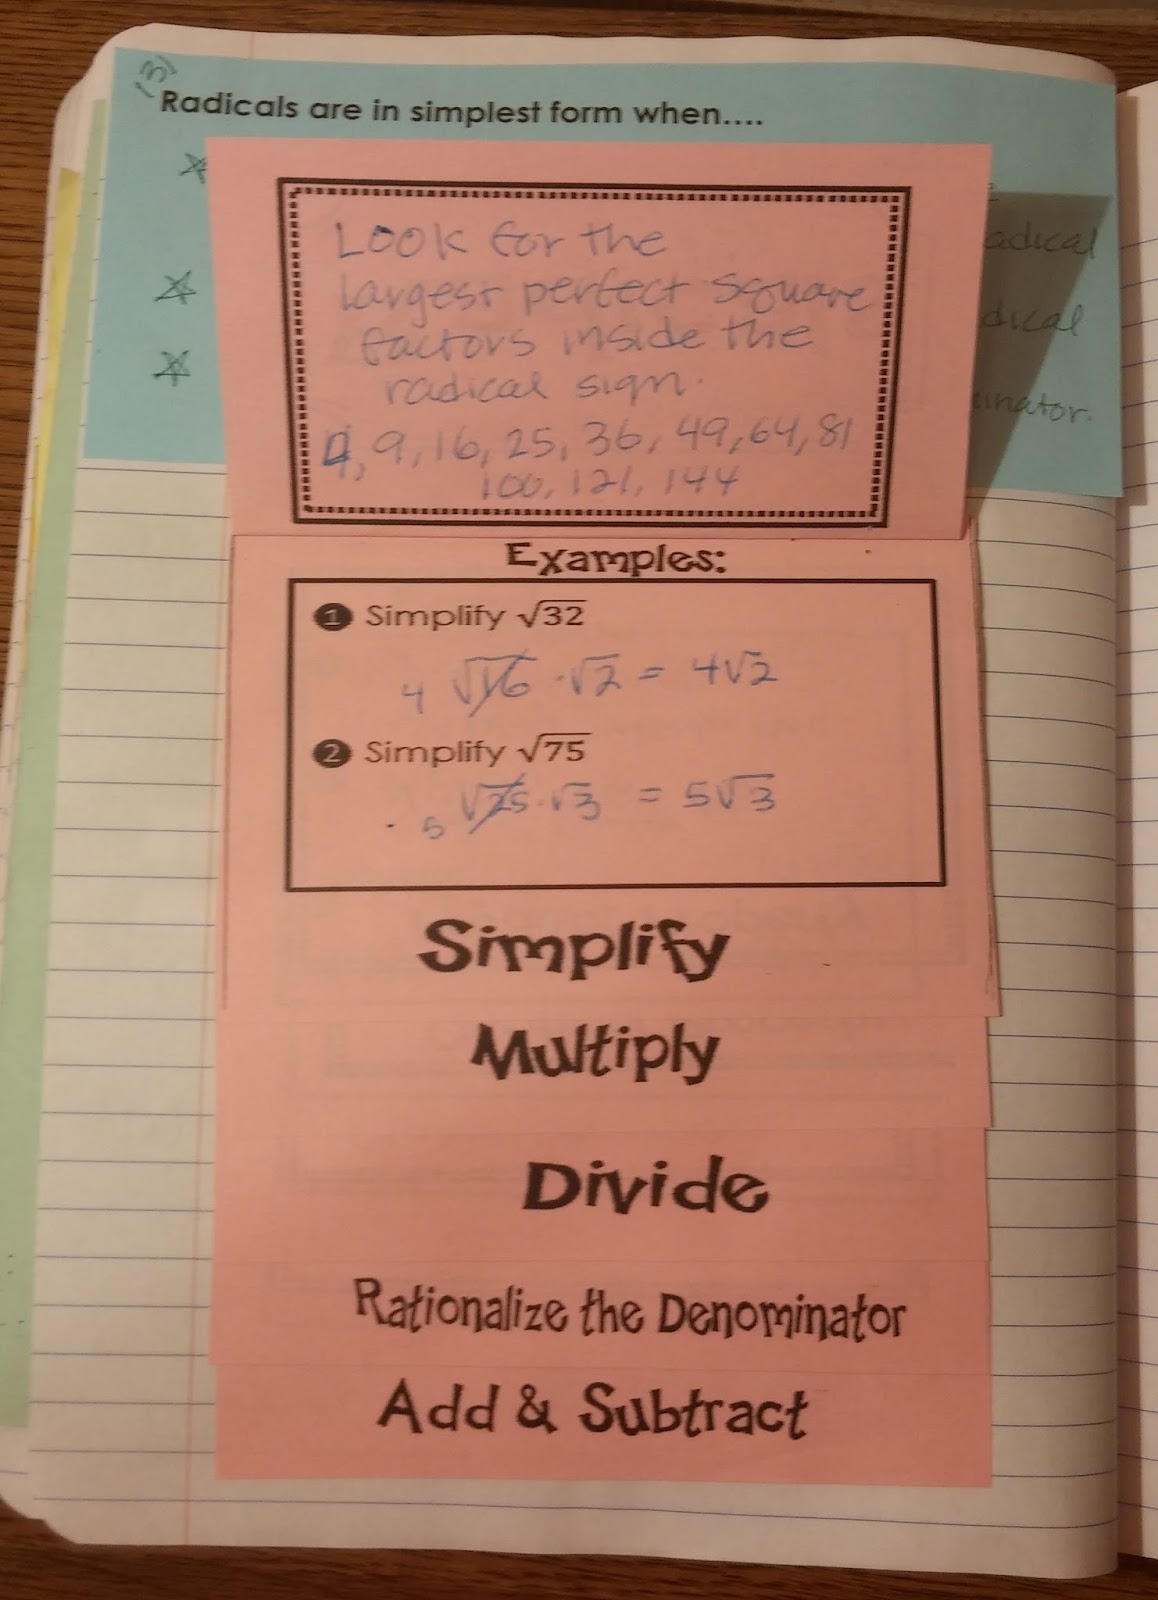 (3)
Radicals are in simplest form when....
adical
dical
inator.
Look for the
largest perfect square
factors inside the
radical sign.
4, 9, 16, 25, 36, 49, 64, 81
100, 121, 144
Examples:
1 Simplify √32
4 √16 · √2 = 4√2
2 Simplify √75
5 √25 · √3 = 5√3
Simplify
Multiply
Divide
Rationalize the Denominator
Add & Subtract